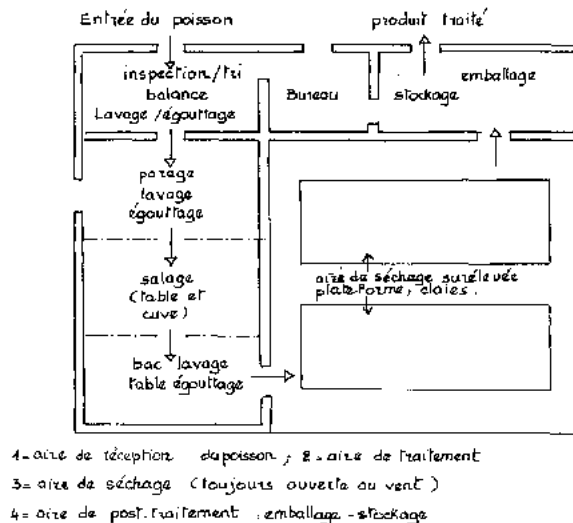 Entrée du poisson
produit traité
inspection/tri
balance
Lavage/égouttage
Bureau
stockage
emballage
parage
lavage
égouttage
salage
(table et
cuve)
bac lavage
table égouttage
aire de séchage surélevée
plate-forme, claies.
1= aire de réception du poisson ; 2= aire de traitement
3= aire de séchage (toujours ouverte au vent)
4= aire de post.traitement : emballage - stockage